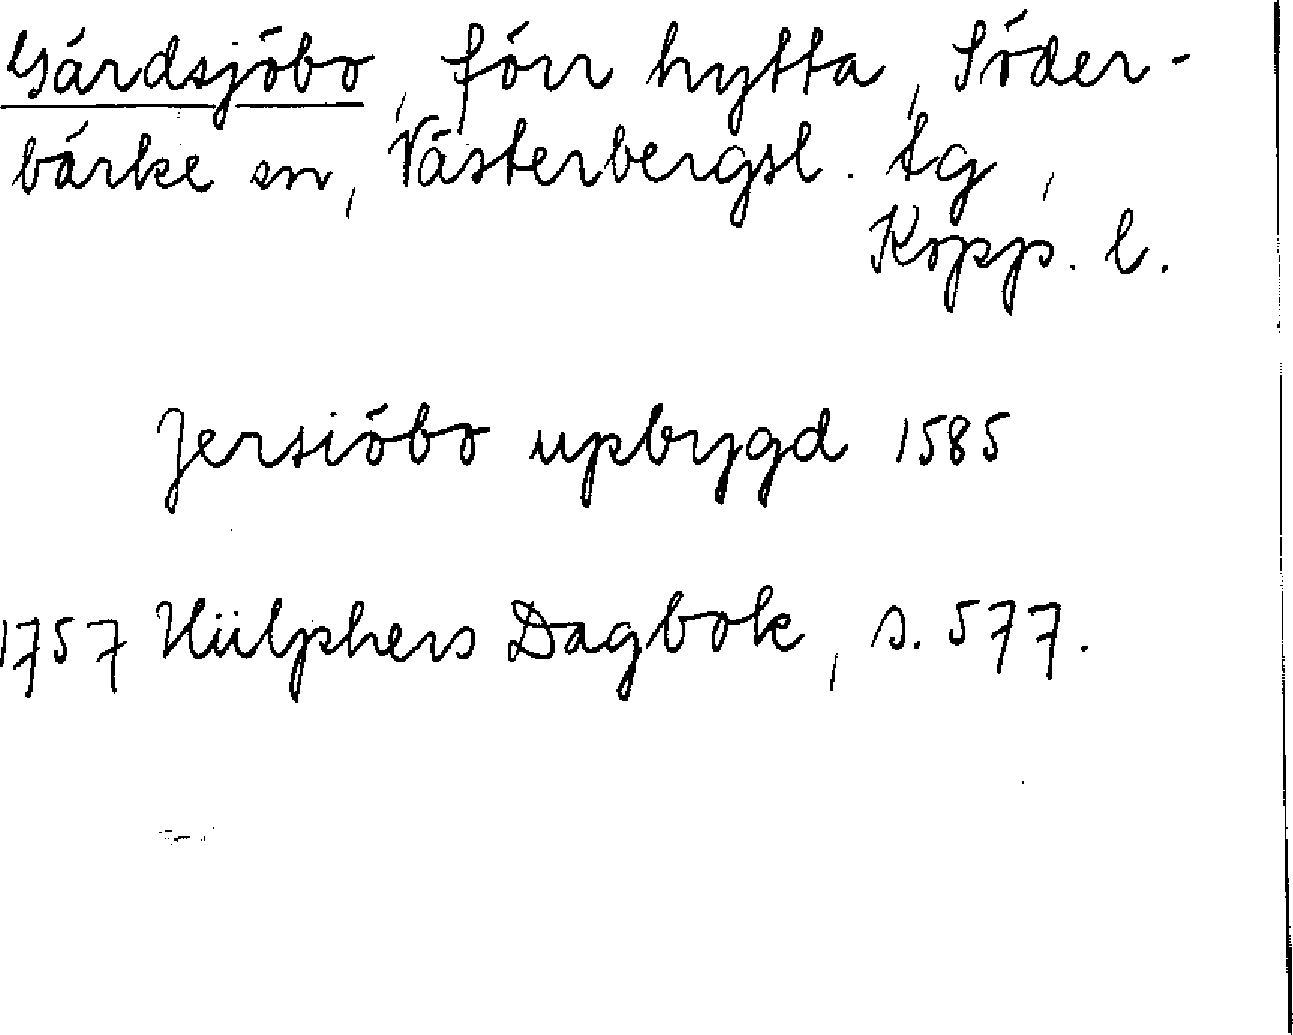 Gärdsjöbo, förr hytta, Söder-
bärke sn, Västerbergsl. tg,
Kopp. l.
Jersiöbo upbygd 1585
1757 Hülphers Dagbok, s. 577.